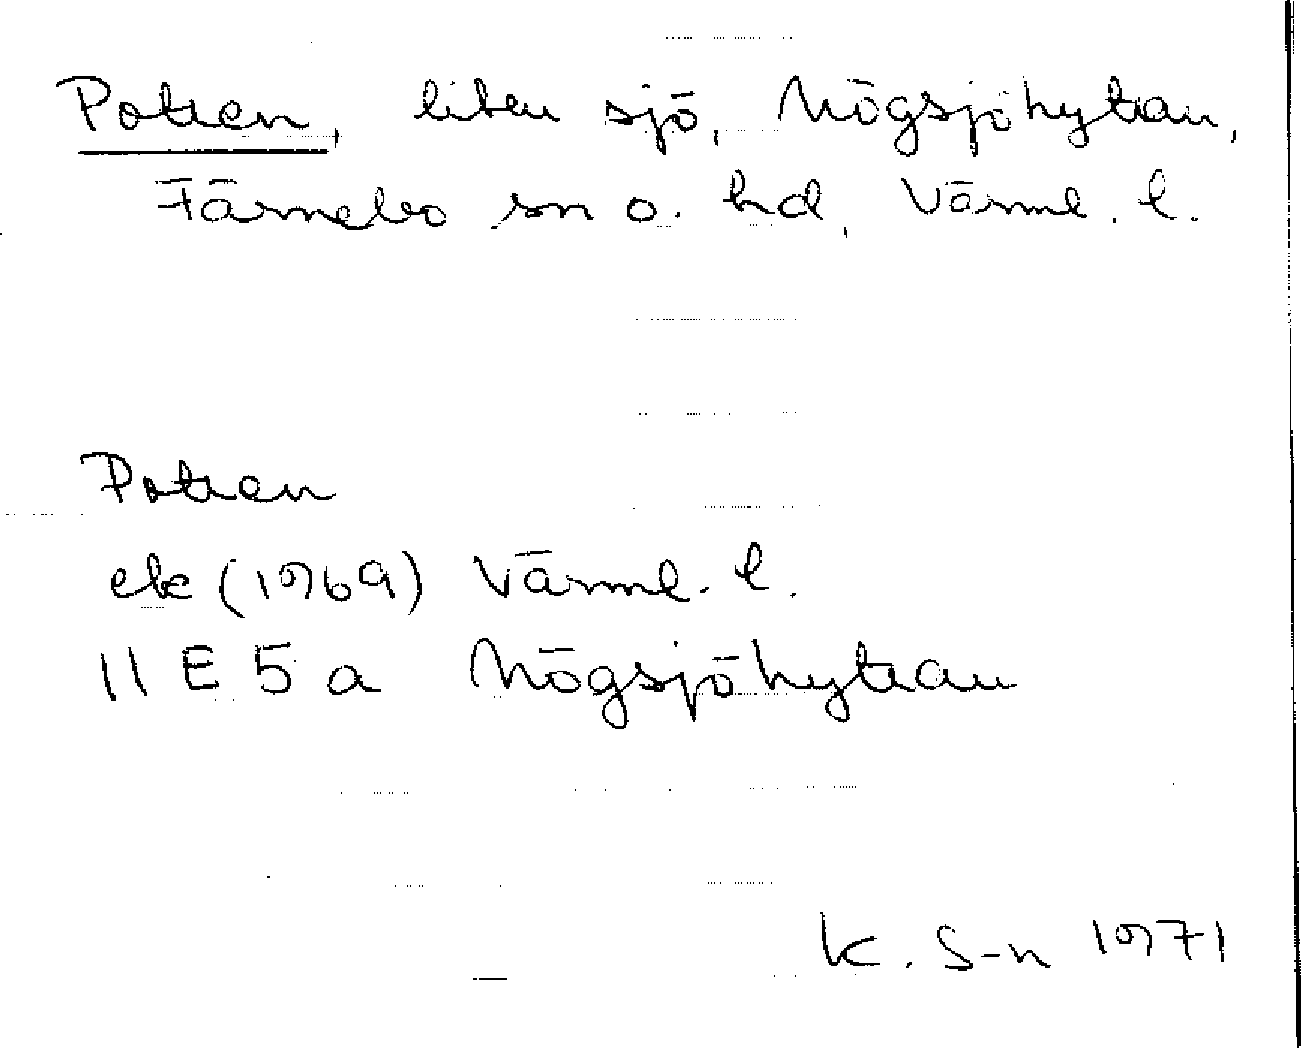 Potten, liten sjö, Mögsjöhyttan,
Färnebo sn o. hd, Värml. l.
Potten
ek (1969) Värml. l.
11 E 5 a Mögsjöhyttan
K. S-n 1971